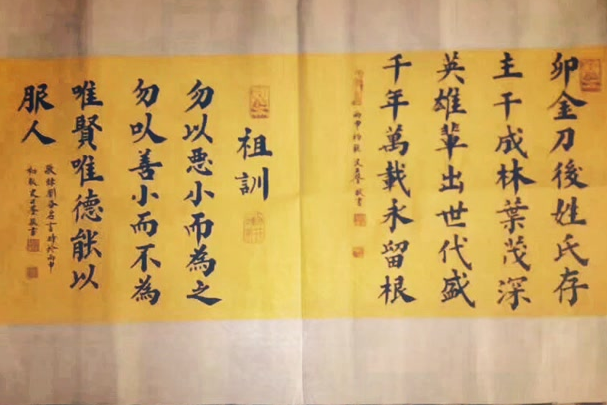 卯金刀後姓氏存
主干成林葉茂深
英雄輩出世代盛
千年萬載永留根
丙申初秋
祖訓
勿以惡小而為之
勿以善小而不為
唯賢唯德能以
服人
敬錄劉備名言時於丙申
初秋